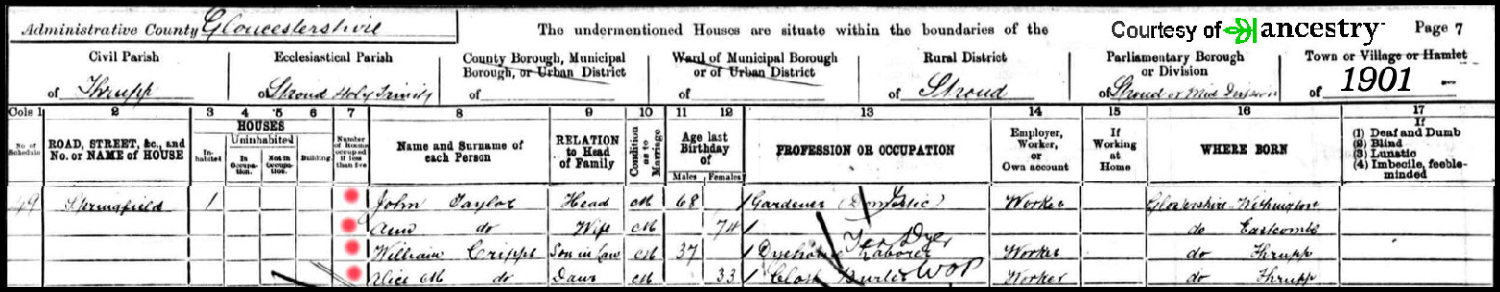 Administrative County Gloucestershire The undermentioned Houses are situate within the boundaries of the Courtesy of ancestry Page 7
Civil Parish Ecclesiastical Parish County Borough, Municipal Borough, or Urban District Ward of Municipal Borough or of Urban District Rural District Parliamentary Borough or Division Town or Village or Hamlet
of Thrupp of Stroud Holy Trinity of of of Stroud of Stroud or Mid Division of 1901
Cols 1 2 3 4 5 6 7 8 9 10 11 12 13 14 15 16 17
No. of Schedule ROAD, STREET, &c., and No. or NAME of HOUSE HOUSES Inhabited Uninhabited In Occupation. Not in Occupation. Building. Number of Rooms occupied if less than five Name and Surname of each Person RELATION to Head of Family Condition as to Marriage Age last Birthday of Males Females PROFESSION OR OCCUPATION Employer, Worker, or Own account If Working at Home WHERE BORN If (1) Deaf and Dumb (2) Blind (3) Lunatic (4) Imbecile, feeble-minded
49 Springfield 1 John Taylor Head M 68 Gardener (Domestic) Worker Glostershire Withington
Ann do Wife M 74 do Eastcombe
William Cripps Son in Law M 37 Dyehouse Laborer Dyer Worker do Thrupp
Alice M do Daur M 33 Cloth Burler WOP Worker do Thrupp